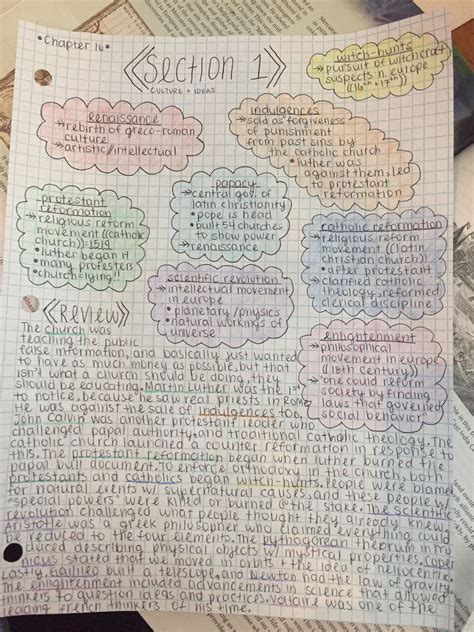 •Chapter 16•
Section 1
CULTURE + IDEAS
witch-hunts
→pursuit of witchcraft
suspects n europe
((16th+17th))
Renaissance
→rebirth of greco-roman
culture
→artistic/intellectual
indulgences
→sold as forgiveness
of punishment
from past sins by
the catholic church
•luther was
against them, led
to protestant
reformation
protestant
reformation
→religious reform
movement (catholic
church))-1519
•luther began it
•many protesters
•church=lying!!
papacy
→central gov. of
latin christianity
•pope is head
•built 54 churches
to show power
→renaissance
catholic reformation
→religious reform
movement ((latin
christian church))
•after protestant
→clarified catholic
theology, reformed
clerical discipline
scientific revolution
→intellectual movement
in europe
•planetary/physics
•natural workings of
universe
enlightenment
→philosophical
movement in europe
((18th century))
→one could reform
society by finding
laws that governed
social behavior
Review
The church was
teaching the public
false information, and basically just wanted
to have as much money as possible, but that
isn't what a church should be doing, they
should be educating. Martin Luther was the 1st
to notice, because he saw real priests in Rome.
He was against the sale of indulgences too.
John Calvin was another protestant leader who
challenged papal authority, and traditional catholic theology. The
catholic church launched a counter reformation in response to
this. The protestant reformation began when luther burned the
papal bull document. To enforce orthodoxy in the church, both
protestants and catholics began witch-hunts. People were blamed
for natural events w/ supernatural causes, and these people w/
"special powers" were killed or burned @ the stake. The scientific
revolution challenged what people thought they already knew.
Aristotle was a greek philosopher who claimed everything could
be reduced to the four elements. The pythagorean theorum intro
duced describing physical objects w/ mystical properties. Coper
nicus stated that we moved in orbits + the idea of heliocentric.
Lastly, Galileo built a telescope, and Newton had the law of gravity.
The enlightenment included advancements in science that allowed
thinkers to question ideas and practices. Voltaire was one of the
leading french thinkers of his time.